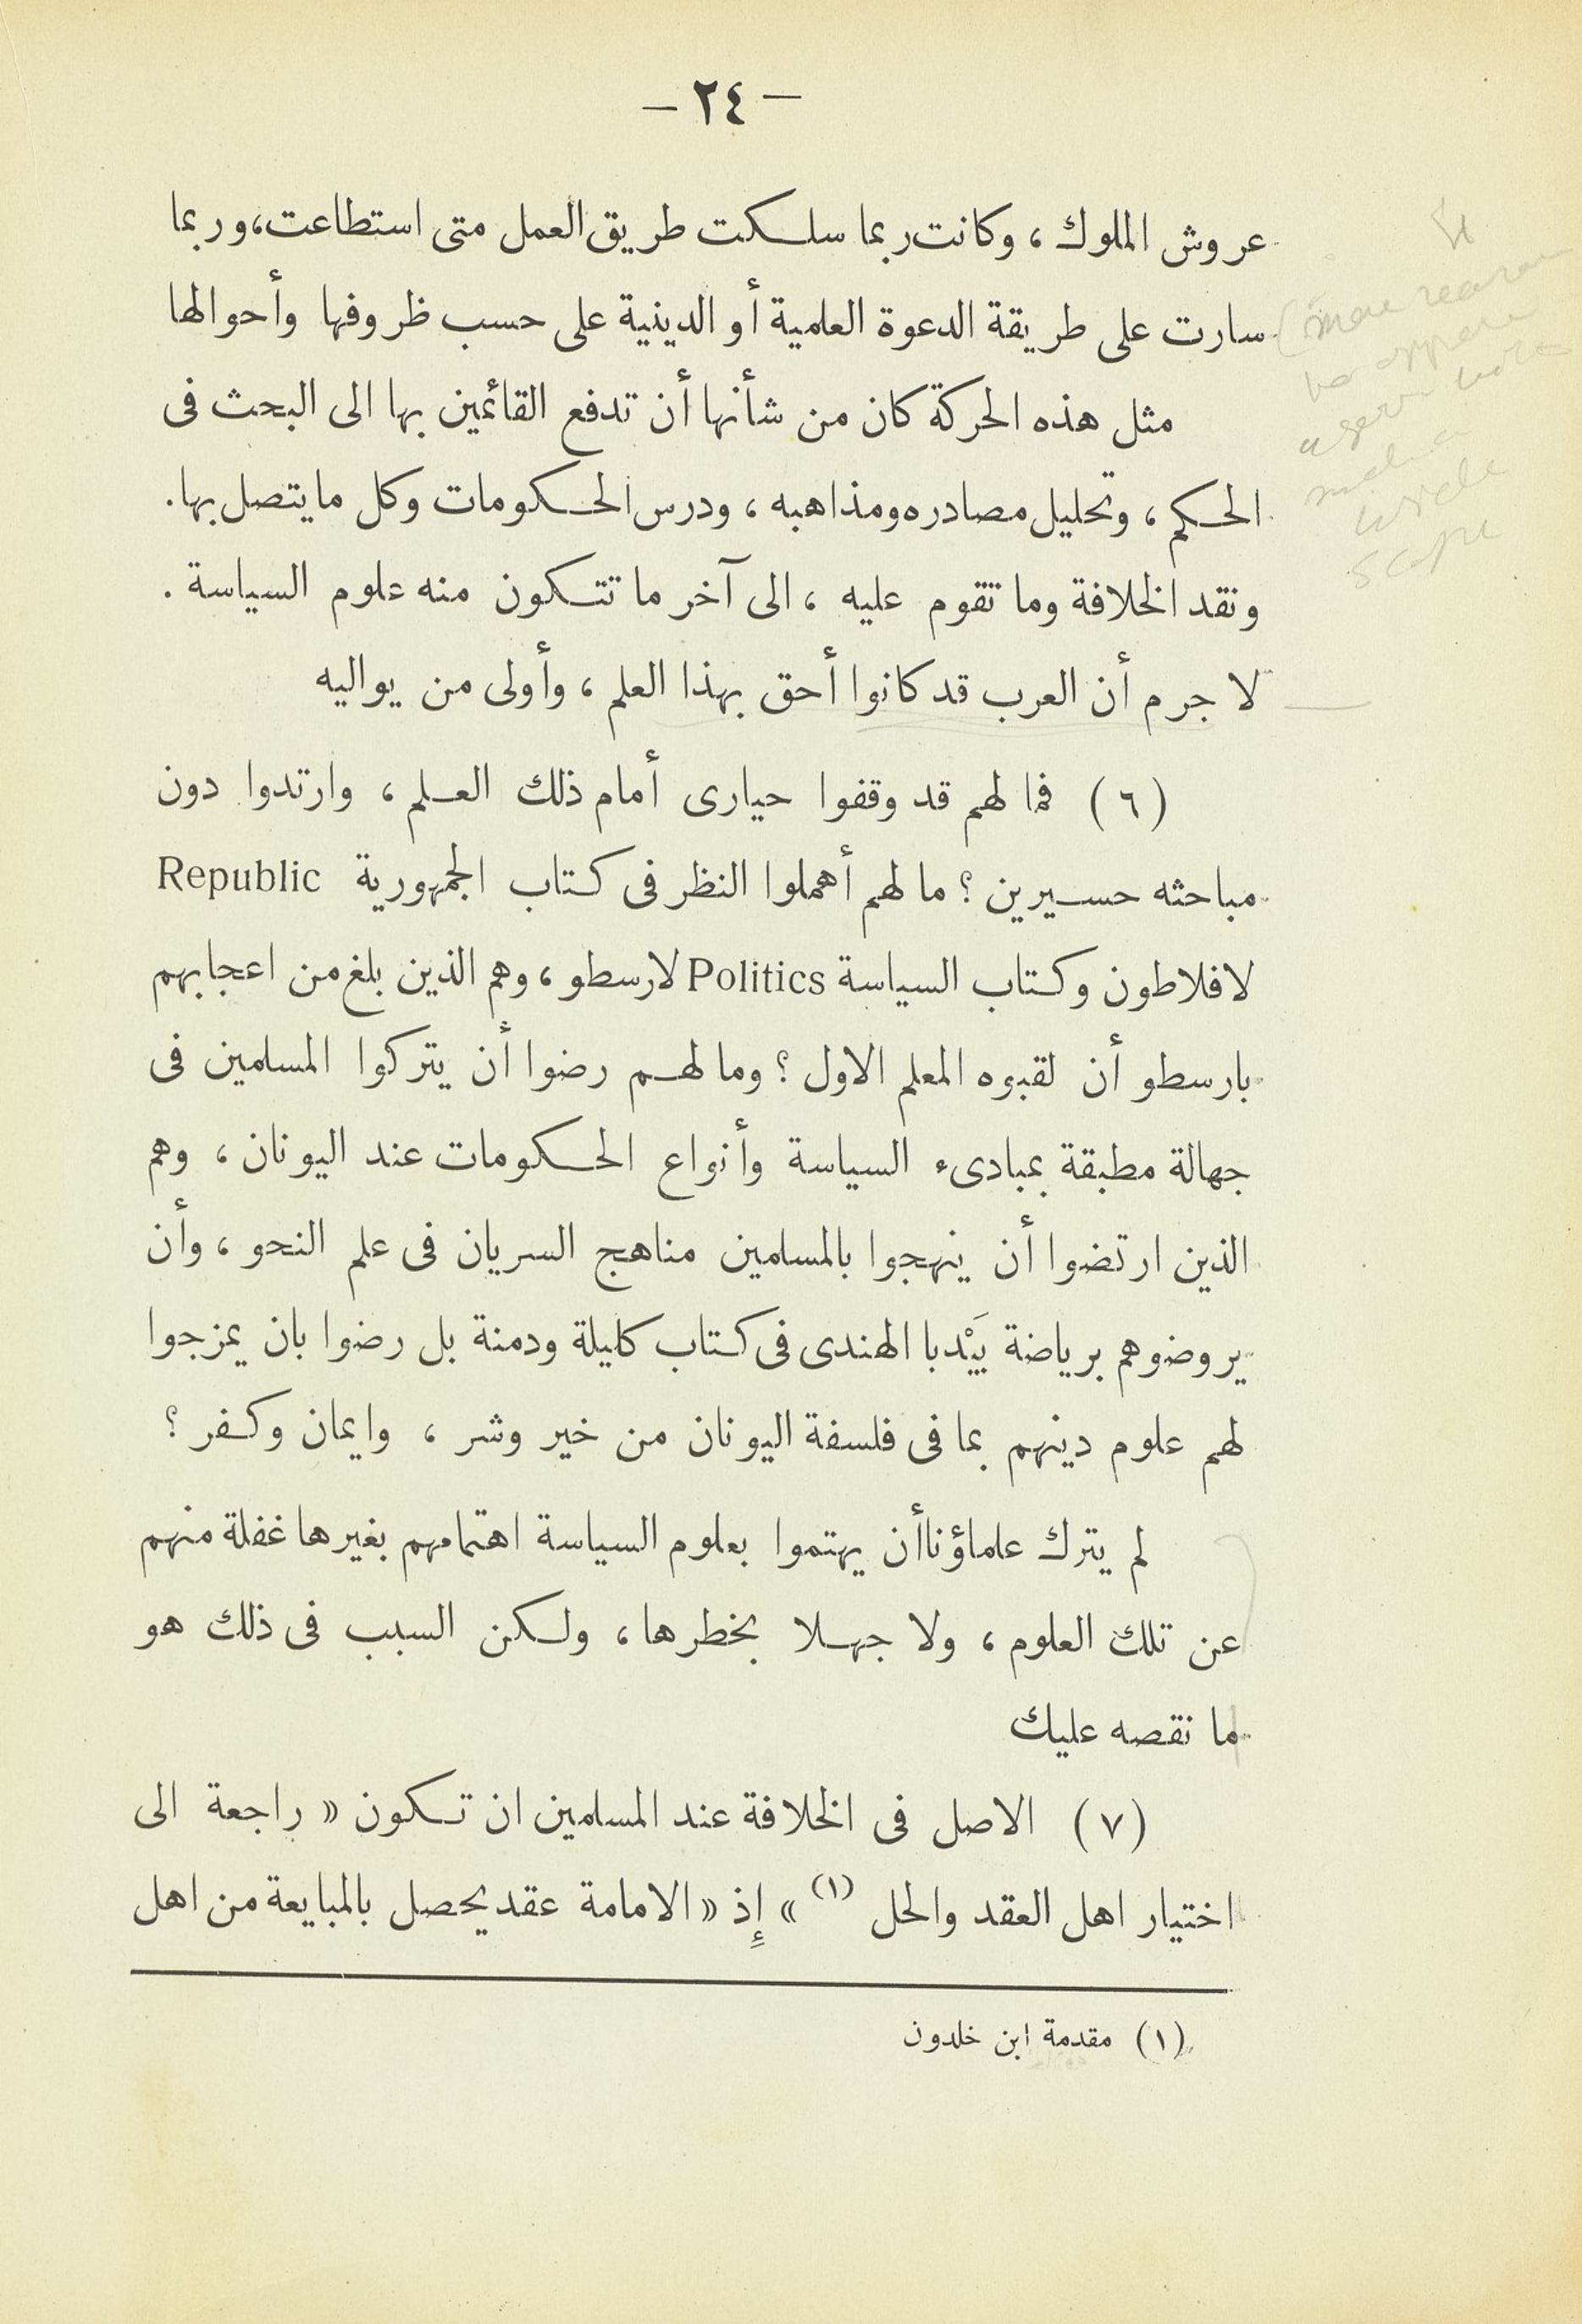 — ٢٤ —
عروش الملوك ، وكانت ربما سلكت طريق العمل متى استطاعت، وربما
سارت على طريقة الدعوة العلمية أو الدينية على حسب ظروفها وأحوالها
مثل هذه الحركة كان من شأنها أن تدفع القائمين بها الى البحث فى
الحكم ، وتحليل مصادره ومذاهبه ، ودرس الحكومات وكل ما يتصل بها .
ونقد الخلافة وما تقوم عليه ، الى آخر ما تتكون منه علوم السياسة .
لا جرم أن العرب قد كانوا أحق بهذا العلم ، وأولى من يواليه
(٦) فما لهم قد وقفوا حيارى أمام ذلك العلم ، وارتدوا دون
مباحثه حسيرين ؟ ما لهم أهملوا النظر فى كتاب الجمهورية Republic
لافلاطون وكتاب السياسة Politics لارسطو ، وهم الذين بلغ من اعجابهم
بارسطو أن لقبوه المعلم الاول ؟ وما لهم رضوا أن يتركوا المسلمين فى
جهالة مطبقة بمبادىء السياسة وأنواع الحكومات عند اليونان ، وهم
الذين ارتضوا أن ينهجوا بالمسلمين مناهج السريان فى علم النحو ، وأن
يروضوهم برياضة بَيْدبا الهندى فى كتاب كليلة ودمنة بل رضوا بان يمزجوا
لهم علوم دينهم بما فى فلسفة اليونان من خير وشر ، وايمان وكفر ؟
لم يترك علماؤنا أن يهتموا بعلوم السياسة اهتمامهم بغيرها غفلة منهم
عن تلك العلوم ، ولا جهلا بخطرها ، ولكن السبب فى ذلك هو
ما نقصه عليك
(٧) الاصل فى الخلافة عند المسلمين ان تكون « راجعة الى
اختيار اهل العقد والحل (١) » إِذ « الامامة عقد يحصل بالمبايعة من اهل
(١) مقدمة ابن خلدون
wide
scope